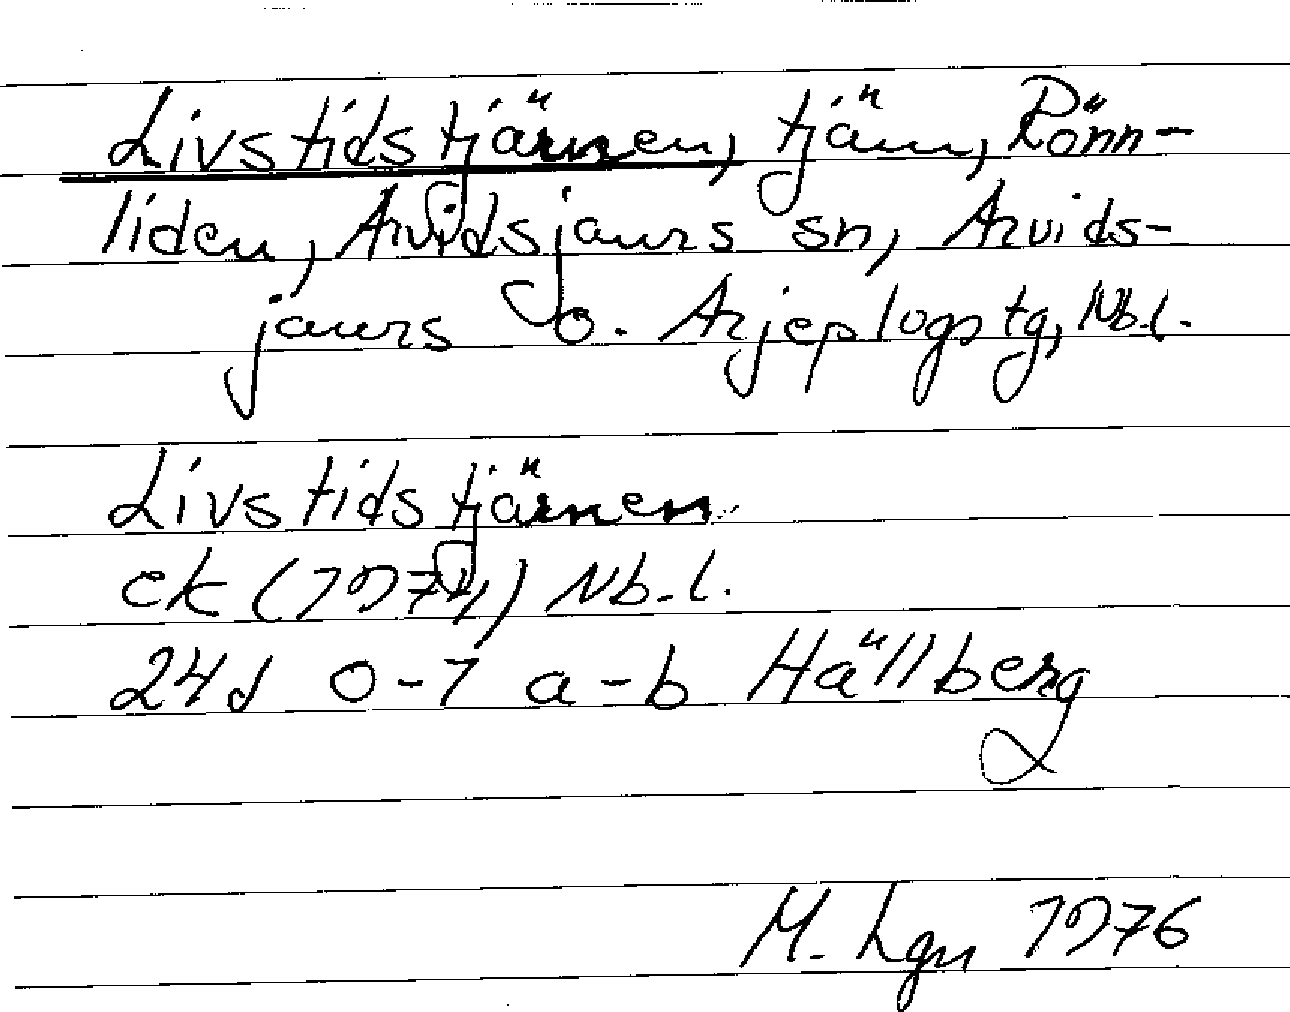 Livstidstjärnen, tjärn, Rönn-
liden, Arvidsjaurs sn, Arvids-
jaurs o. Arjeplogs tg, Nb.l.
Livstidstjärnen
ek (1974) Nb.l.
24J 0-1 a-b Hällberg
M. Lgn 1976